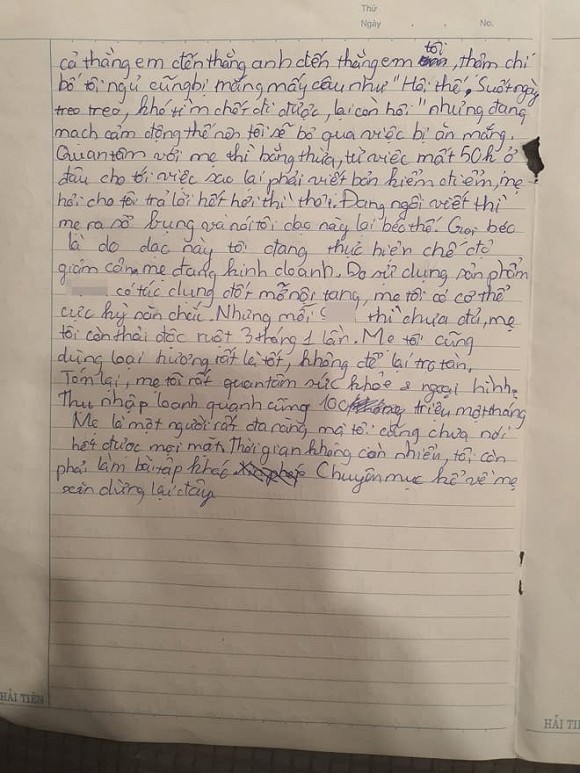 Thứ
Ngày . . No.
cả thằng em đến thằng anh đến thằng em tôi, thậm chí
bố tôi ngủ cũng bị mắng mấy câu như "Hôi thế, Suốt ngày
treo treo, khó tìm chết đi được, lại còn hôi" nhưng đang
mạch cảm động thế nên tôi sẽ bỏ qua việc bị ăn mắng.
Quan tâm với mẹ thì bằng thừa, từ việc mất 50k ở
đâu cho tới việc sao lại phải viết bản kiểm điểm, mẹ
hỏi cho tôi trả lời hết hơi thì thôi. Đang ngồi viết thì
mẹ ra sờ bụng và nói tôi dạo này lại béo thế. Gọi béo
là do dạo này tôi đang thực hiện chế độ
giảm cân mẹ đang kinh doanh. Do sử dụng sản phẩm
có tác dụng đốt mỡ nội tạng, mẹ tôi có cơ thể
cực kỳ săn chắc. Nhưng mỗi S thì chưa đủ, mẹ
tôi còn thải độc ruột 3 tháng 1 lần. Mẹ tôi cũng
dùng loại hương rất là tốt, không để lại tro tàn.
Tóm lại, mẹ tôi rất quan tâm sức khỏe & ngoại hình.
Thu nhập loanh quanh cũng 100 triệu một tháng
Mẹ là một người rất đa năng mà tôi cũng chưa nói
hết được mọi mặt. Thời gian không còn nhiều, tôi còn
phải làm bài tập khác Chuyên mục kể về mẹ
xin dừng lại đây
HẢI TIẾN
HẢI TI